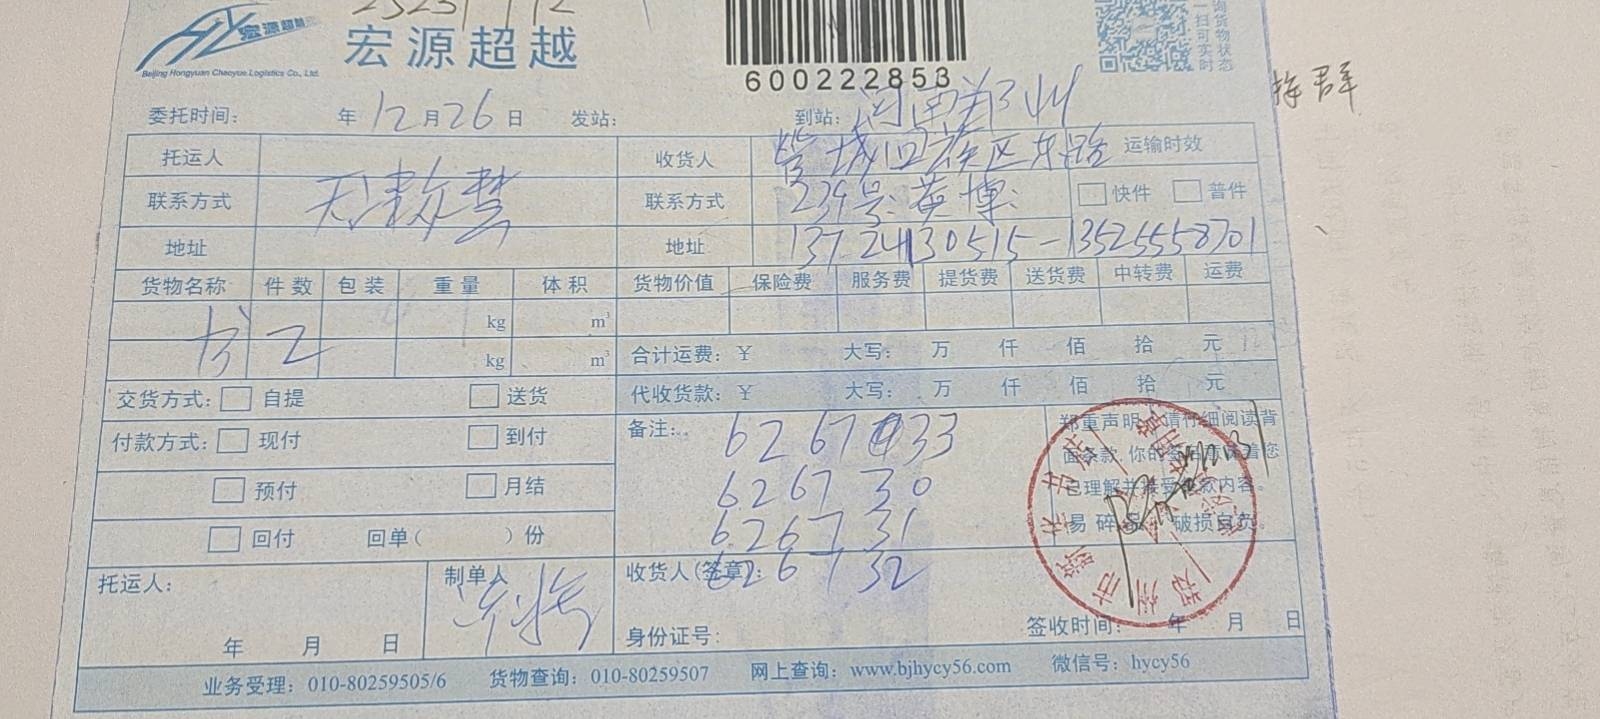 宏源超越
Beijing Hongyuan Chaoyue Logistics Co., Ltd.
600222853
询货物状态
一扫可实时
群
委托时间: 年 12 月 26 日 发站: 到站: 河南郑州
托运人 收货人 管城回族区东路 运输时效
联系方式 天津 慧 联系方式 239号 英博 快件 普件
地址 地址 137 24130515-13525558701
货物名称 件数 包装 重量 体积 货物价值 保险费 服务费 提货费 送货费 中转费 运费
kg m³
书 2 kg m³ 合计运费: ¥ 大写: 万 仟 佰 拾 元
交货方式: 自提 送货 代收货款: ¥ 大写: 万 仟 佰 拾 元
付款方式: 现付 到付 备注: 6267 33
预付 月结 626730
回付 回单( )份 626731
626732
郑重声明:请仔细阅读背
面条款,你的签名意味着您
已理解并接受条款内容。
易碎 破损自负。
托运人: 制单人 收货人(签章):
年 月 日 身份证号: 签收时间: 年 月 日
业务受理: 010-80259505/6 货物查询: 010-80259507 网上查询: www.bjhycy56.com 微信号: hycy56